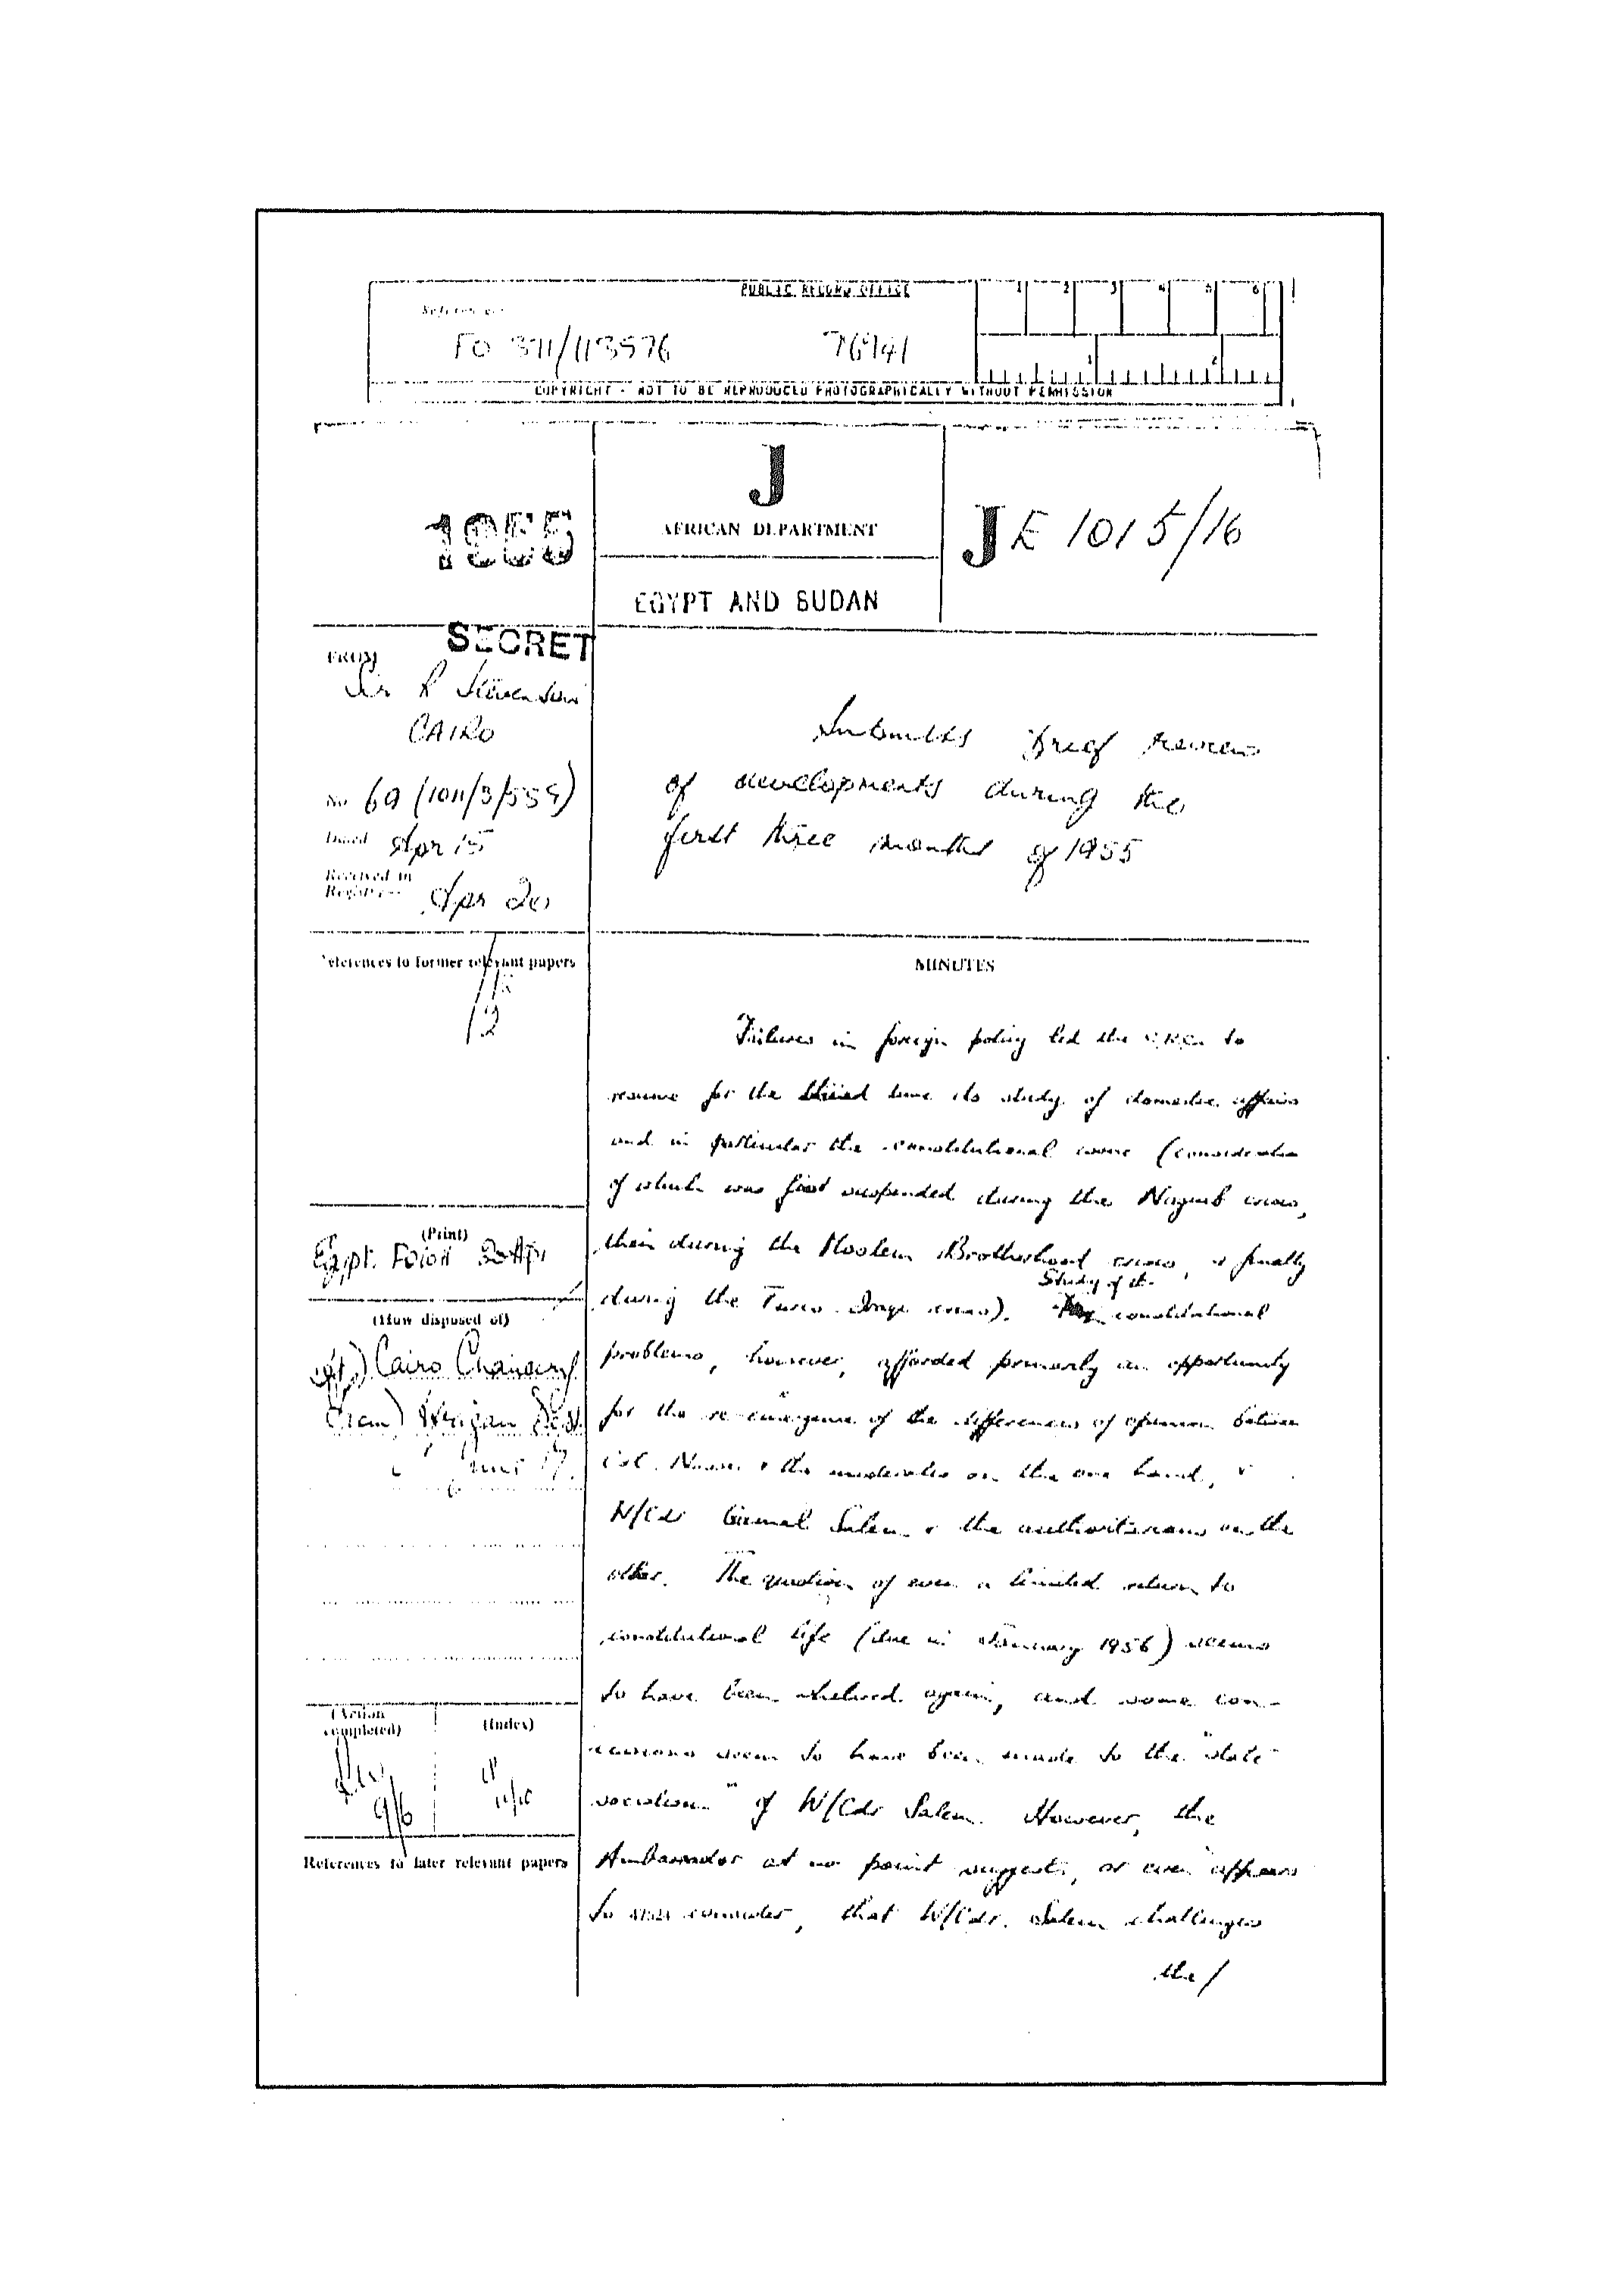 PUBLIC RECORD OFFICE
1 2 3 4 5 6
Reference:-
FO 371/113576 76941
COPYRIGHT - NOT TO BE REPRODUCED PHOTOGRAPHICALLY WITHOUT PERMISSION
1955
J
AFRICAN DEPARTMENT
EGYPT AND SUDAN
JE 1015/16
SECRET
FROM
Sir R Stevenson
CAIRO
No 69 (1011/3/55G)
Dated Apr 15
Received in
Registry Apr 20
Submits Brief Review
of developments during the
first three months of 1955
References to former relevant papers
(Print)
Egypt.
(How disposed of)
Cairo Chancery
(Action
completed)
9/6
(Index)
References to later relevant papers
MINUTES
Failures in foreign policy led the to
resume for the third time its study of domestic affairs
and in particular the constitutional issue (consideration
of which was first suspended during the Naguib crisis,
then during the Moslem Brotherhood crisis, & finally
during the Turco-Iraqi crisis). Study of the constitutional
problems, however, afforded primarily an opportunity
for the re-emergence of the differences of opinion between
Col. Nasser & the moderates on the one hand, &
W/Cdr Gamal Salem & the authoritarians on the
other. The question of even a limited return to
constitutional life (due in January 1956) seems
to have been shelved again, and some con-
cessions seem to have been made to the "state
socialism" of W/Cdr Salem. However, the
Ambassador at no point suggests, or even appears
to consider, that W/Cdr. Salem challenges
the/